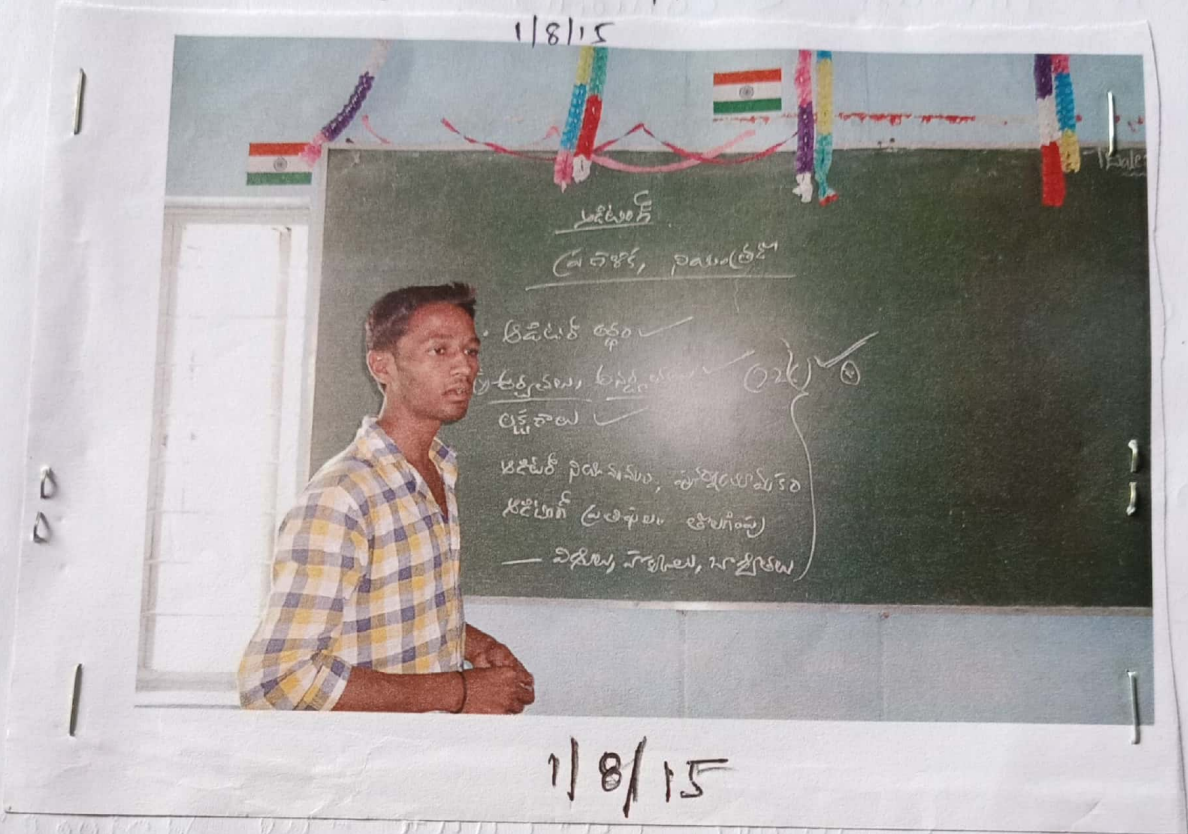 1/8/15
ఆడిటింగ్
ప్రణాళిక, నియంత్రణ
ఆడిటర్ అర్థం
అర్హతలు, అనర్హతలు
లక్షణాలు
ఆడిటర్ నియామకం, పునర్నియామకం
ఆడిటర్ ప్రతిఫలం తొలగింపు
— విధులు, హక్కులు, బాధ్యతలు
1/8/15